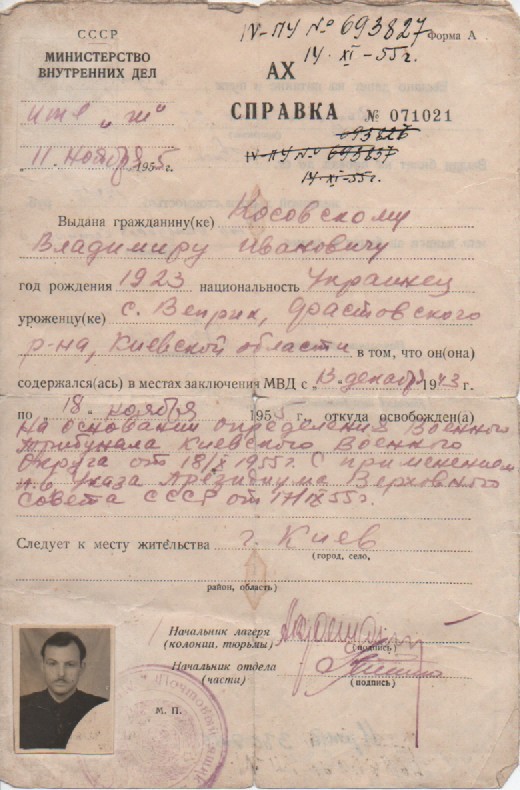 IV-ПУ № 693827
14-XI-55г.
Форма А
СССР
МИНИСТЕРСТВО
ВНУТРЕННИХ ДЕЛ
АХ
СПРАВКА № 071021
ИТЛ „Ж"
IV-ПУ № 693637
14-XI-55г.
„11 ноября 1955г.
Выдана гражданину(ке) Косовскому
Владимиру Ивановичу
год рождения 1923 национальность Украинец
уроженцу(ке) с. Веприк, Фастовского
р-на, Киевской области в том, что он(она)
содержался(ась) в местах заключения МВД с „13" декабря 1943 г.
по „18" ноября 1955 г., откуда освобожден(а)
на основании определения Военного
Трибунала Киевского Военного
Округа от 18/X 1955г. С применением
Указа Президиума Верховного
Совета СССР от 17/IX 55г.
Следует к месту жительства г. Киев
(город, село,
район, область)
Начальник лагеря
(колонии, тюрьмы)
(подпись)
Начальник отдела
(части)
(подпись)
М. П.
Почтовый ящик